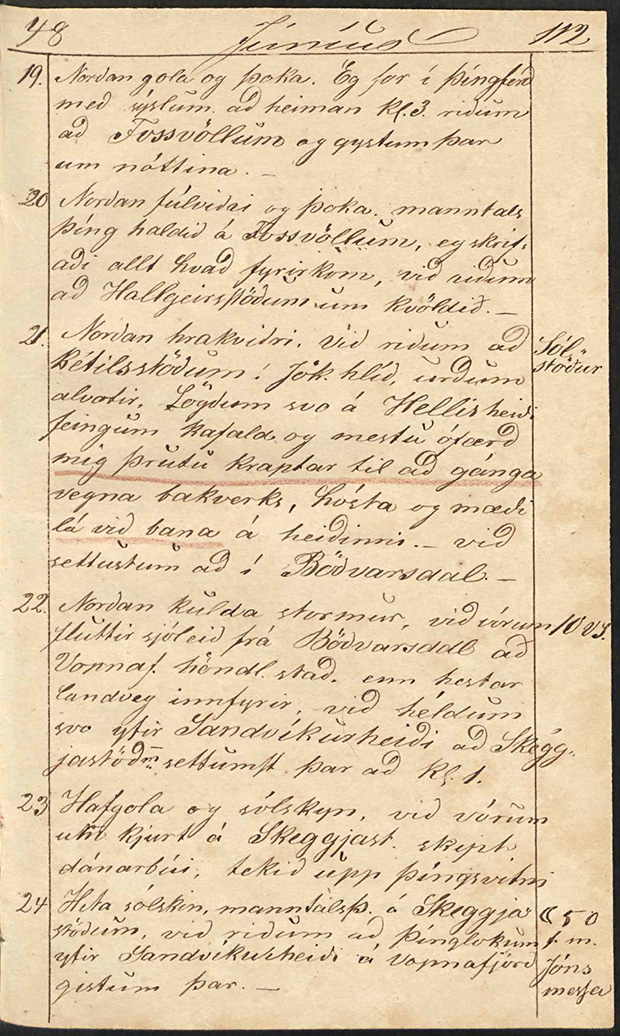 48 Júníus 112
19. Nordan gola og þoka. Eg for i þingferd
med sýslum. ad heiman kl. 3. ridum
ad Fossvöllum og gystum þar
um nóttina. –
20 Nordan fúlvidri og þoka. manntals
þing haldid á Fossvöllum, eg skrif-
adi allt hvad fyrirkom, vid ridum
ad Hallgeirsstödum um kvöldid. –
21. Nordan hrakvidri. vid ridum ad
Ketilsstödum í Jök. hlíd, urdum
alvotir. Lögdum svo á Hellisheidi
feingum kafald og mestu ófærd
mig þrutu kraptar til ad gánga
vegna bakverks, hósta og mædi
lá vid bana á heidinni. – vid
settustum ad i Bödvarsdal. –
Sól-
stödur
22. Nordan kulda stormur, vid vórum
fluttir sjóleid frá Bödvarsdal ad
Vopnaf. höndl. stad. enn hestar
landveg innfyrir, vid héldum
svo yfir Sandvíkurheidi ad Skegg-
jastödm settumst þar ad kl. 1.
10 vs.
23 Hafgola og sólskyn, vid vórum
um kjurt á Skeggjast. skipt
dánarbúi, tekid upp þingsvitni
24 Hita sólskin, manntalsþ. á Skeggja
stödum, vid ridum ad þinglokum
yfir Sandvíkurheidi á Vopnafjörd
gistum þar. –
50
f. m.
Jóns
messa